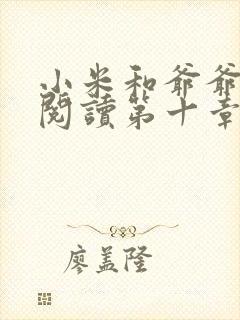 小米和爺爺
閱讀第十章
廖盖隆